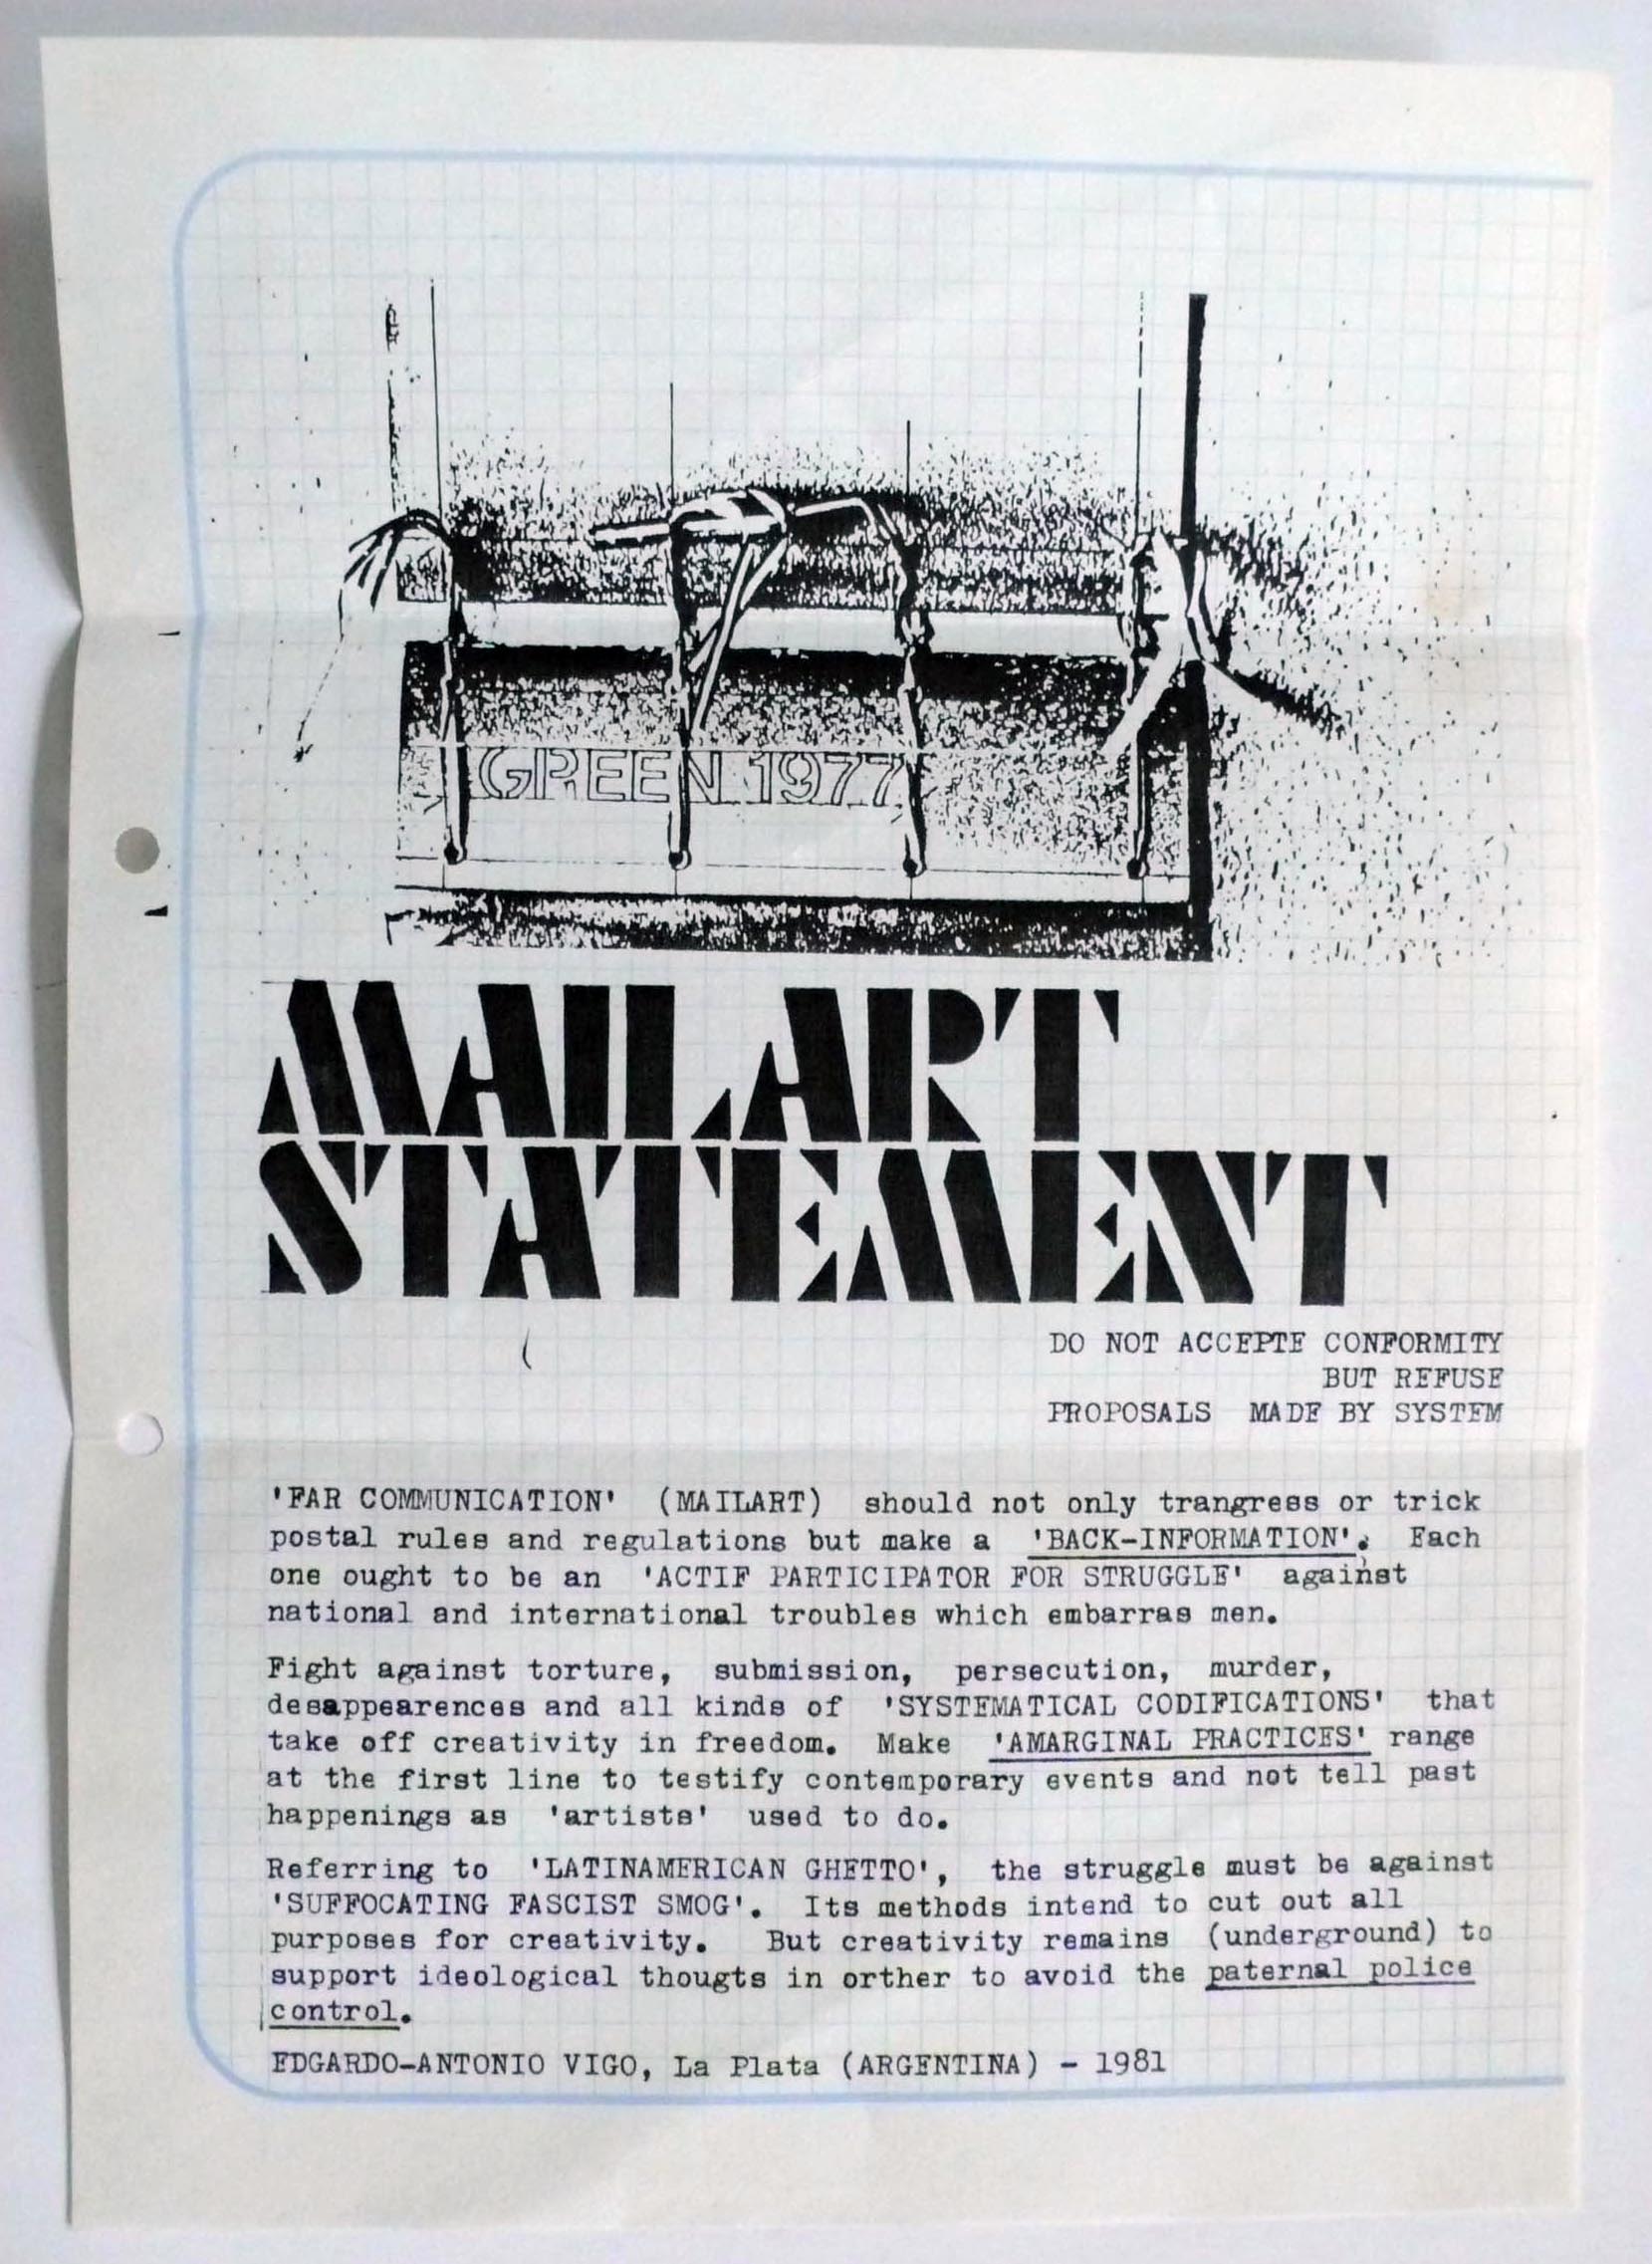 GREEN 1977
MAILART
STATEMENT
DO NOT ACCEPTE CONFORMITY
BUT REFUSE
PROPOSALS MADE BY SYSTEM
'FAR COMMUNICATION' (MAILART) should not only trangress or trick
postal rules and regulations but make a 'BACK-INFORMATION'. Each
one ought to be an 'ACTIF PARTICIPATOR FOR STRUGGLE' against
national and international troubles which embarras men.
Fight against torture, submission, persecution, murder,
desappearences and all kinds of 'SYSTEMATICAL CODIFICATIONS' that
take off creativity in freedom. Make 'AMARGINAL PRACTICES' range
at the first line to testify contemporary events and not tell past
happenings as 'artists' used to do.
Referring to 'LATINAMERICAN GHETTO', the struggle must be against
'SUFFOCATING FASCIST SMOG'. Its methods intend to cut out all
purposes for creativity. But creativity remains (underground) to
support ideological thougts in orther to avoid the paternal police
control.
EDGARDO-ANTONIO VIGO, La Plata (ARGENTINA) - 1981